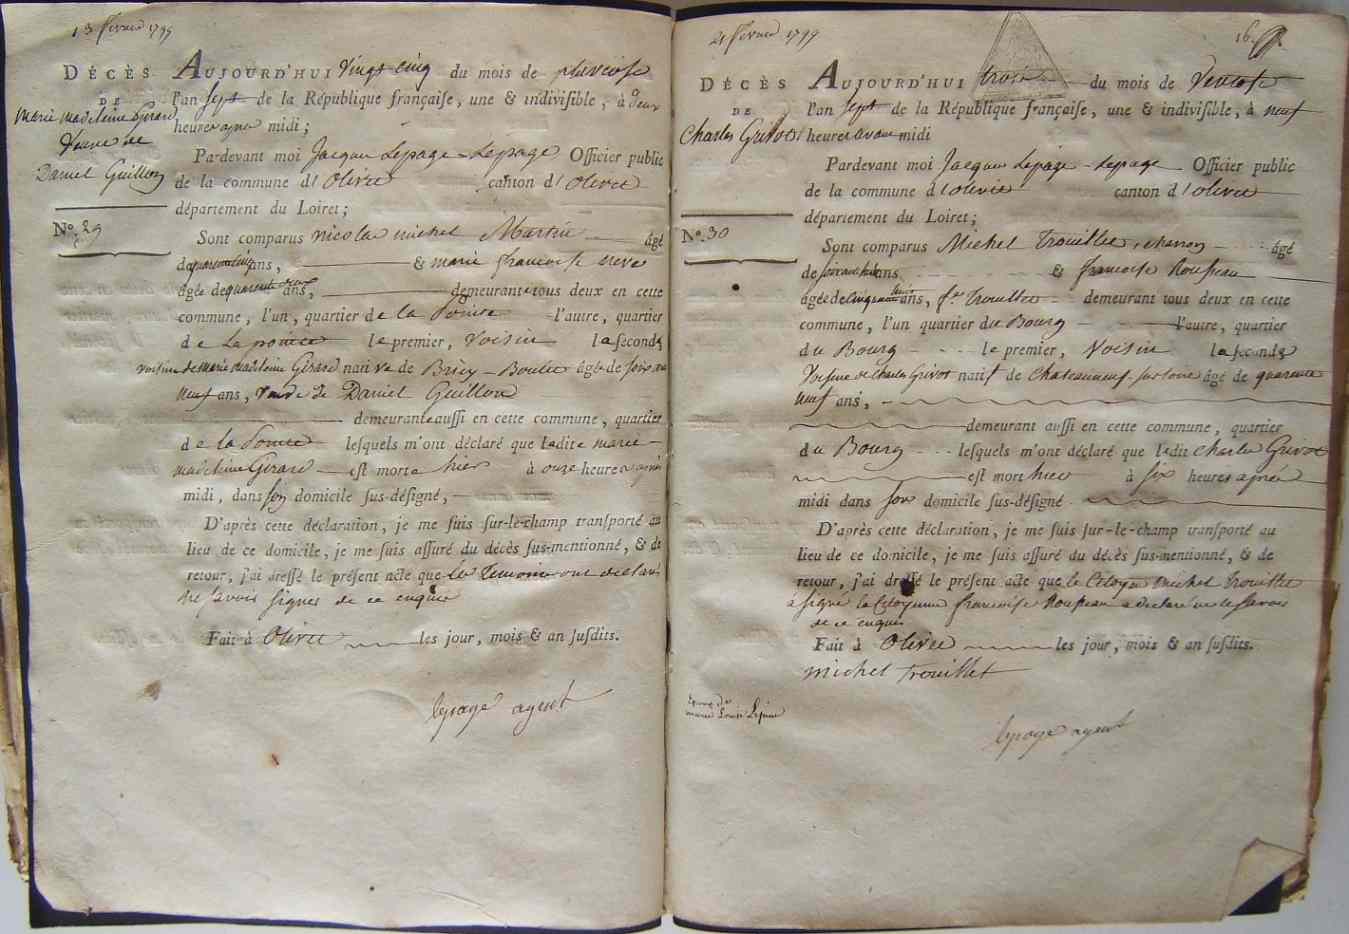 13 fevrier 1799
DÉCÈS
DE
Marie madeleine Girard
Veuve de
Daniel Guillon
No. 29
AUJOURD'HUI Vingt cinq du mois de pluviose
l'an sept de la République françaiſe, une & indiviſible, à deux
heures apres midi ;
Pardevant moi Jacques Lepage-Lepage Officier public
de la commune d'Olivet canton d'Olivet
département du Loiret ;
Sont comparus nicolas michel Martin âgé
de ans, & marie francoise
âgée de quarante ans, demeurant tous deux en cette
commune, l'un, quartier de la l'autre, quartier
de le premier, Voisin la seconde
voisine de marie madeleine Girard native de Briey âgée de soixante
neuf ans, veuve de Daniel Guillon
demeurante aussi en cette commune, quartier
de la lesquels m'ont déclaré que ladite marie
madeleine Girard est morte hier à onze heures après
midi, dans son domicile sus-désigné,
D'après cette déclaration, je me suis sur-le-champ transporté au
lieu de ce domicile, je me suis assuré du décès sus-mentionné, & de
retour, j'ai dressé le présent acte que les temoins ont declaré
ne savoir signer de ce enquis
Fait à Olivet les jour, mois & an susdits.
lepage agent
21 fevrier 1799
16
DÉCÈS
DE
Charles Grivot
No. 30
AUJOURD'HUI trois du mois de Ventose
l'an sept de la République françaiſe, une & indiviſible, à neuf
heures avant midi
Pardevant moi Jacques Lepage-Lepage Officier public
de la commune d'olivet canton d'olivet
département du Loiret ;
Sont comparus Michel Trouillet, charon âgé
de ans & francoise Rouseau
âgée de cinquante ans, fe Trouillet demeurant tous deux en cette
commune, l'un quartier du Bourg l'autre, quartier
du Bourg le premier, Voisin la seconde
Voisine de Charles Grivot natif de Chateauneuf-sur loire âgé de quarante
neuf ans,
demeurant aussi en cette commune, quartier
du Bourg lesquels m'ont déclaré que ledit Charles Grivot
est mort hier à six heures après
midi dans son domicile sus-désigné
D'après cette déclaration, je me suis sur-le-champ transporté au
lieu de ce domicile, je me suis assuré du décès sus-mentionné, & de
retour, j'ai dressé le présent acte que le Citoyen michel Trouillet
a signé la Citoyenne francoise Rouseau a declaré ne le savoir
de ce enquis
Fait à Olivet les jour, mois & an susdits.
michel trouillet
Epoux de
marie Louise
lepage agent